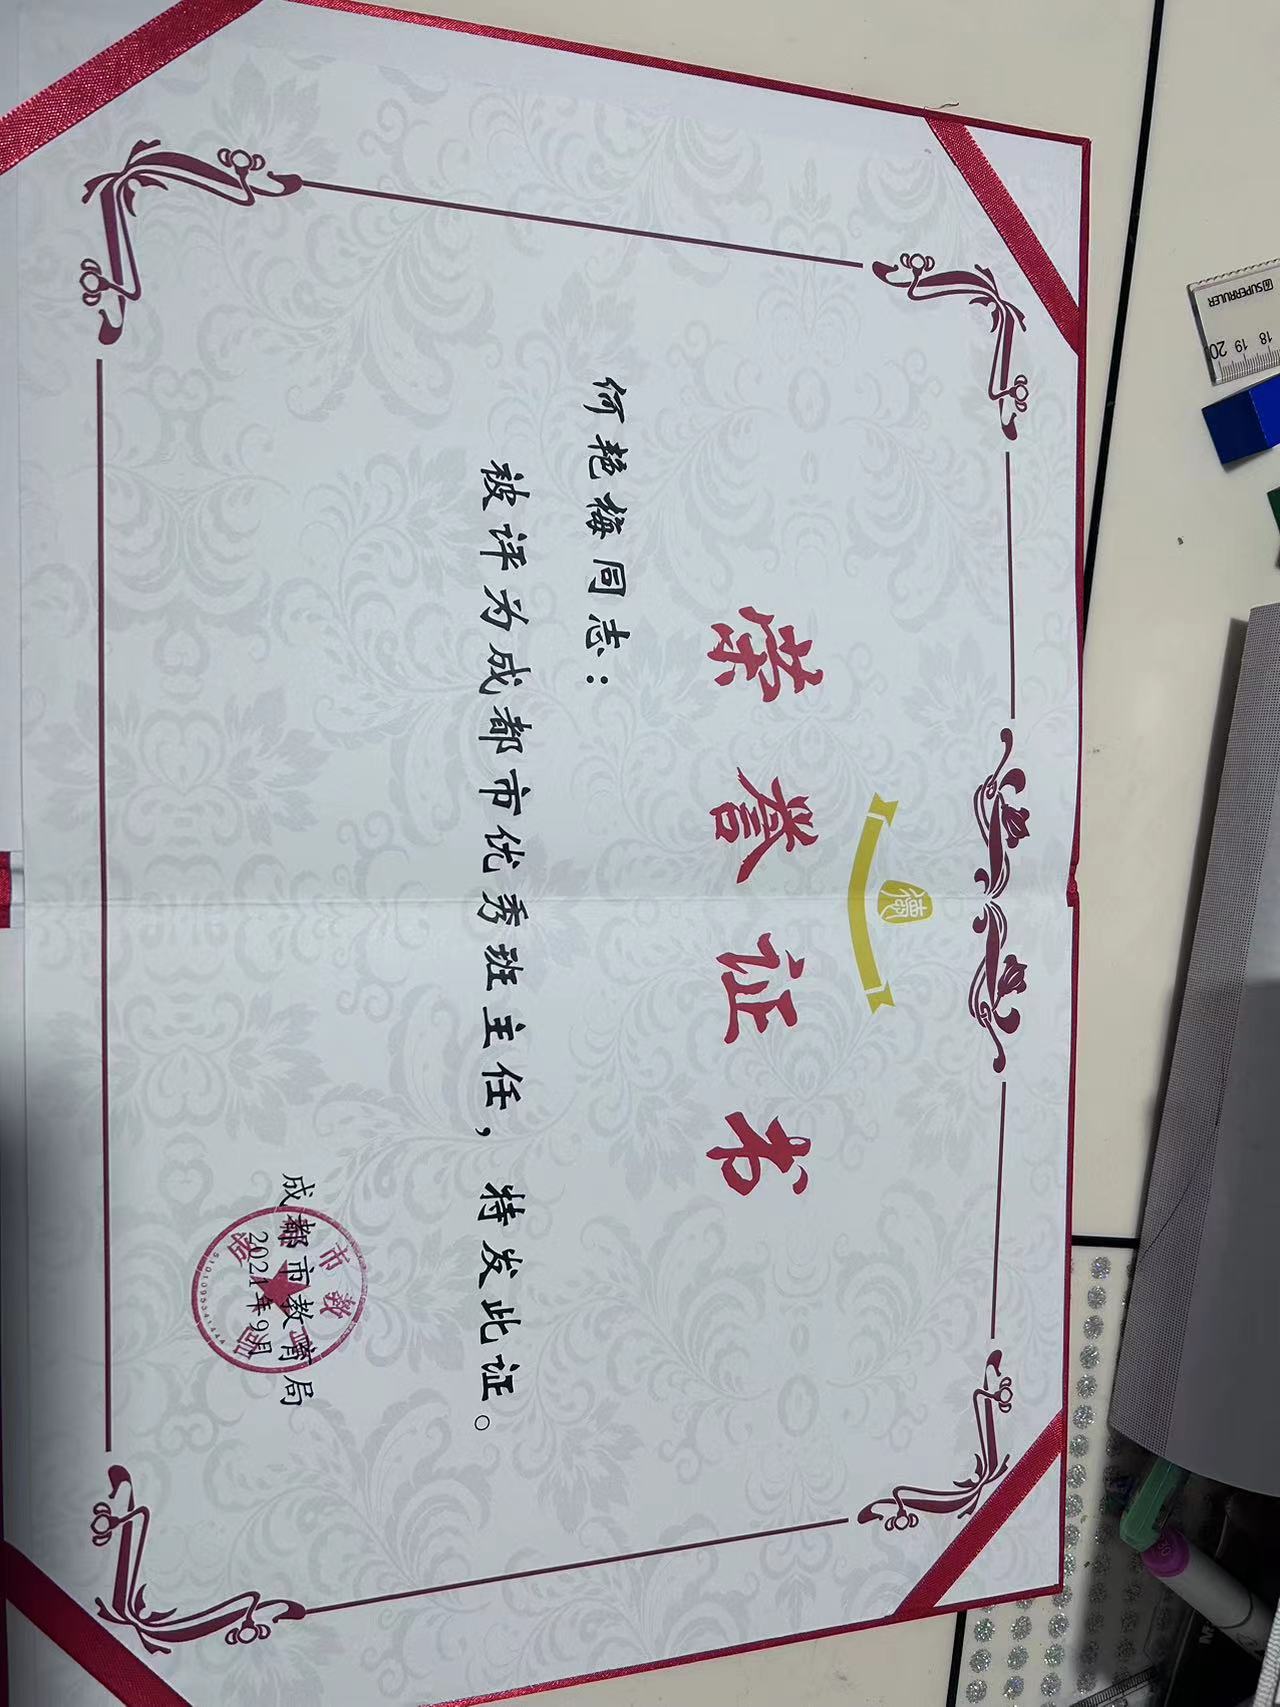 德
荣誉证书
何艳梅同志：
被评为成都市优秀班主任，特发此证。
成都市教育局
2021年9月
SUPERRULER
20 19 18